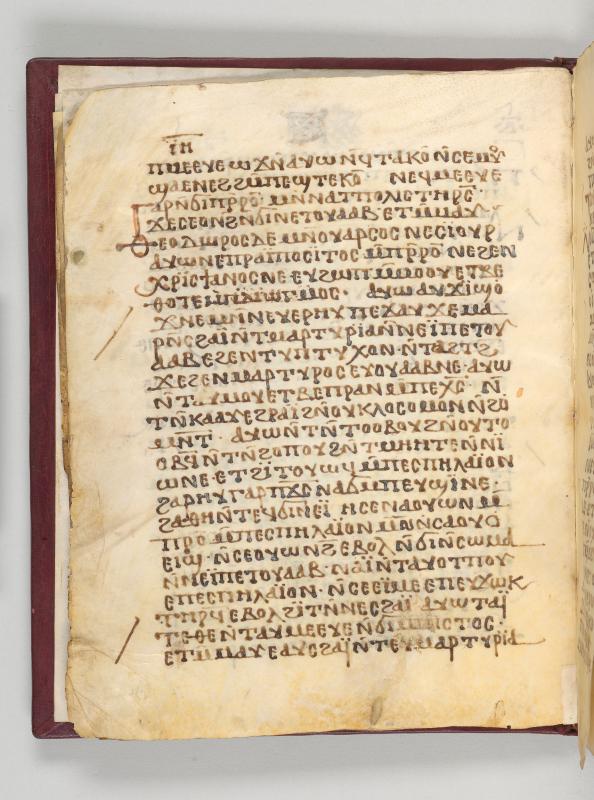 ⲓ̅ⲏ̅
ⲡⲙⲉⲉⲩⲉ ⲱϫⲛ̄ ⲁⲩⲱ ⲛϥⲧⲁⲕⲟ ⲛ̄ⲥⲉ
ϣⲁⲉⲛⲉϩ ϩⲙⲡⲉϣⲧⲉⲕⲟ ⲛⲉϥⲙⲉⲉⲩⲉ
ⲅⲁⲣ ⲛ̄ϭⲓⲡⲣ̄ⲣⲟ ⲙⲛ̄ⲛⲁⲧⲡⲟⲗⲓⲥ ⲧⲏⲣⲥ̄
ϫⲉⲥⲉⲟⲛϩ ⲛ̄ϭⲓⲛⲉⲧⲟⲩⲁⲁⲃ ⲉⲧⲙⲙⲁⲩ
ⲑⲉⲟⲇⲱⲣⲟⲥ ⲇⲉ ⲙⲛ̄ϩⲟⲩⲁⲣⲥⲟⲥ ⲛⲉⲥⲓⲟⲩⲣ
ⲁⲩⲱ ⲛⲉⲡⲣⲁⲓⲡⲟⲥⲓⲧⲟⲥ ⲙ̄ⲡⲣ̄ⲣⲟ ⲛⲉϩⲉⲛ
ⲭⲣⲓⲥϯⲁⲛⲟⲥ ⲛⲉ ⲉⲩϩⲏⲡ ⲙ̄ⲙⲟⲟⲩ ⲉⲧⲃⲉ
ⲑⲟⲧⲉ ⲙ̄ⲡⲁⲓⲱⲅⲙⲟⲥ· ⲁⲩⲱ ⲁⲩϫⲓϣⲟ
ϫⲛⲉ ⲙⲛ̄ⲛⲉⲩⲉⲣⲏⲩ ⲡⲉϫⲁⲩ ϫⲉⲙⲁ
ⲣⲛ̄ⲥϩⲁⲓ ⲛ̄ⲧⲙⲁⲣⲧⲩⲣⲓⲁ ⲛ̄ⲛⲉⲓⲡⲉⲧⲟⲩ
ⲁⲁⲃ ⲉϩⲉⲛⲡⲧⲩⲭⲟⲛ ⲛ̄ⲧⲁϩⲧϩ
ϫⲉϩⲉⲛⲙⲁⲣⲧⲩⲣⲟⲥ ⲉⲩⲟⲩⲁⲁⲃ ⲛⲉ· ⲁⲩⲱ
ⲛ̄ⲧⲁⲩⲙⲟⲩ ⲉⲧⲃⲉⲡⲣⲁⲛ ⲙ̄ⲡⲉⲭ̄ⲥ̄· ⲛ̄
ⲧⲛ̄ⲕⲁⲁⲩ ⲉϩⲣⲁⲓ ϩⲛ̄ⲟⲩⲕⲗⲟⲥⲟⲙⲟⲛ ⲛ̄ϩⲟ
ⲙⲛ̄ⲧ· ⲁⲩⲱ ⲛ̄ⲧⲛ̄ⲧⲟⲟⲃⲟⲩ ϩⲛ̄ⲟⲩⲧⲟ
ⲟⲃⲥ̄ ⲛ̄ⲧⲛ̄ϩⲟⲡⲟⲩ ϩⲛ̄ⲧⲙⲏⲧⲉ ⲛ̄ⲛⲓ
ⲱⲛⲉ· ⲉⲧϩⲓⲧⲟⲩⲱϥ ⲙ̄ⲡⲉⲥⲡⲏⲗⲁⲓⲟⲛ
ϩⲁⲣⲏⲩ ⲅⲁⲣ ⲡⲭ̄ⲥ̄ ⲛⲁϭⲙ̄ⲡⲉⲩϣⲓⲛⲉ·
ϩⲁⲑⲏ ⲛ̄ⲧⲉϥϭⲓⲛⲉⲓ ⲏ ⲥⲉⲛⲁⲟⲩⲱⲛ ⲙ̄
ⲡⲣⲟ ⲙ̄ⲡⲉⲥⲡⲏⲗⲁⲓⲟⲛ ⲙⲛ̄ⲛ̄ⲥⲁⲟⲩⲟ
ⲉⲓϣ· ⲛ̄ⲥⲉⲟⲩⲱⲛϩ ⲉⲃⲟⲗ ⲛ̄ϭⲓⲛ̄ⲥⲱⲙⲁ
ⲛ̄ⲛⲉⲓⲡⲉⲧⲟⲩⲁⲁⲃ· ⲛⲁⲓ ⲛ̄ⲧⲁⲩⲟⲧⲡⲟⲩ
ⲉⲡⲉⲥⲡⲏⲗⲁⲓⲟⲛ· ⲛ̄ⲥⲉⲉⲓⲙⲉ ⲉⲡⲉⲩϫⲱⲕ
ⲧⲏⲣϥ ⲉⲃⲟⲗ ϩⲓⲧⲛ̄ⲛⲉⲥϩⲁⲓ ⲁⲩⲱ ⲧⲁⲓ
ⲧⲉ ⲑⲉ ⲛ̄ⲧⲁⲩⲙⲉⲉⲩⲉ ⲛ̄ϭⲓⲙ̄ⲡⲓⲥⲧⲟⲥ·
ⲉⲧⲙ̄ⲙⲁⲩ ⲉⲁⲩⲥϩⲁⲓ ⲛ̄ⲧⲉⲩⲙⲁⲣⲧⲩⲣⲓⲁ